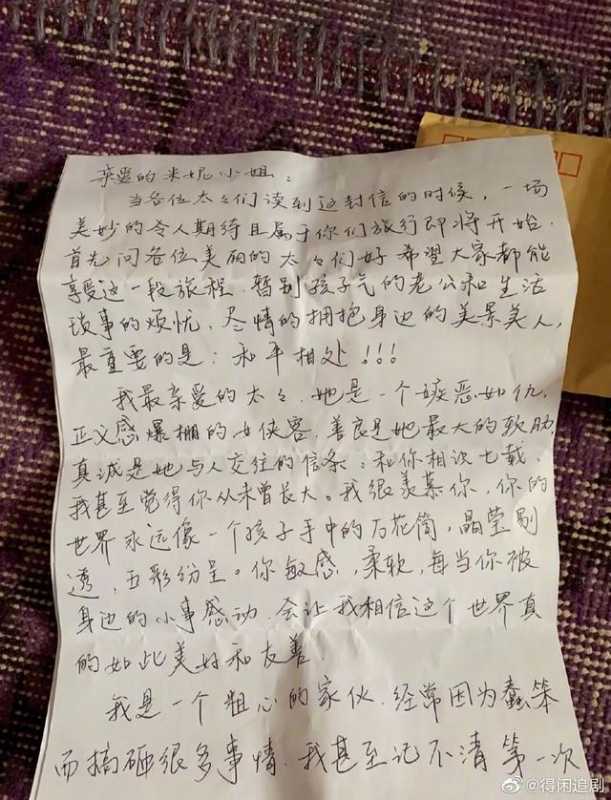 亲爱的米妮小姐：
当各位太々们读到这封信的时候，一场
美妙的令人期待且属于你们旅行即将开始.
首先问各位美丽的太々们好 希望大家都能
享受这一段旅程.暂别孩子气的老公和生活
琐事的烦忧，尽情的拥抱身边的美景美人，
最重要的是：和平相处！！！
我最亲爱的太々.她是一个嫉恶如仇，
正义感爆棚的女侠客，善良是她最大的软肋，
真诚是她与人交往的信条：和你相识七载，
我甚至觉得你从未曾长大。我很羡慕你，你的
世界永远像一个孩子手中的万花筒，晶莹剔
透，五彩纷呈。你敏感，柔软，每当你被
身边的小事感动.会让我相信这个世界真
的如此美好和友善！
我是一个粗心的家伙.经常因为蠢笨
而搞砸很多事情.我甚至记不清第一次
@得闲追剧